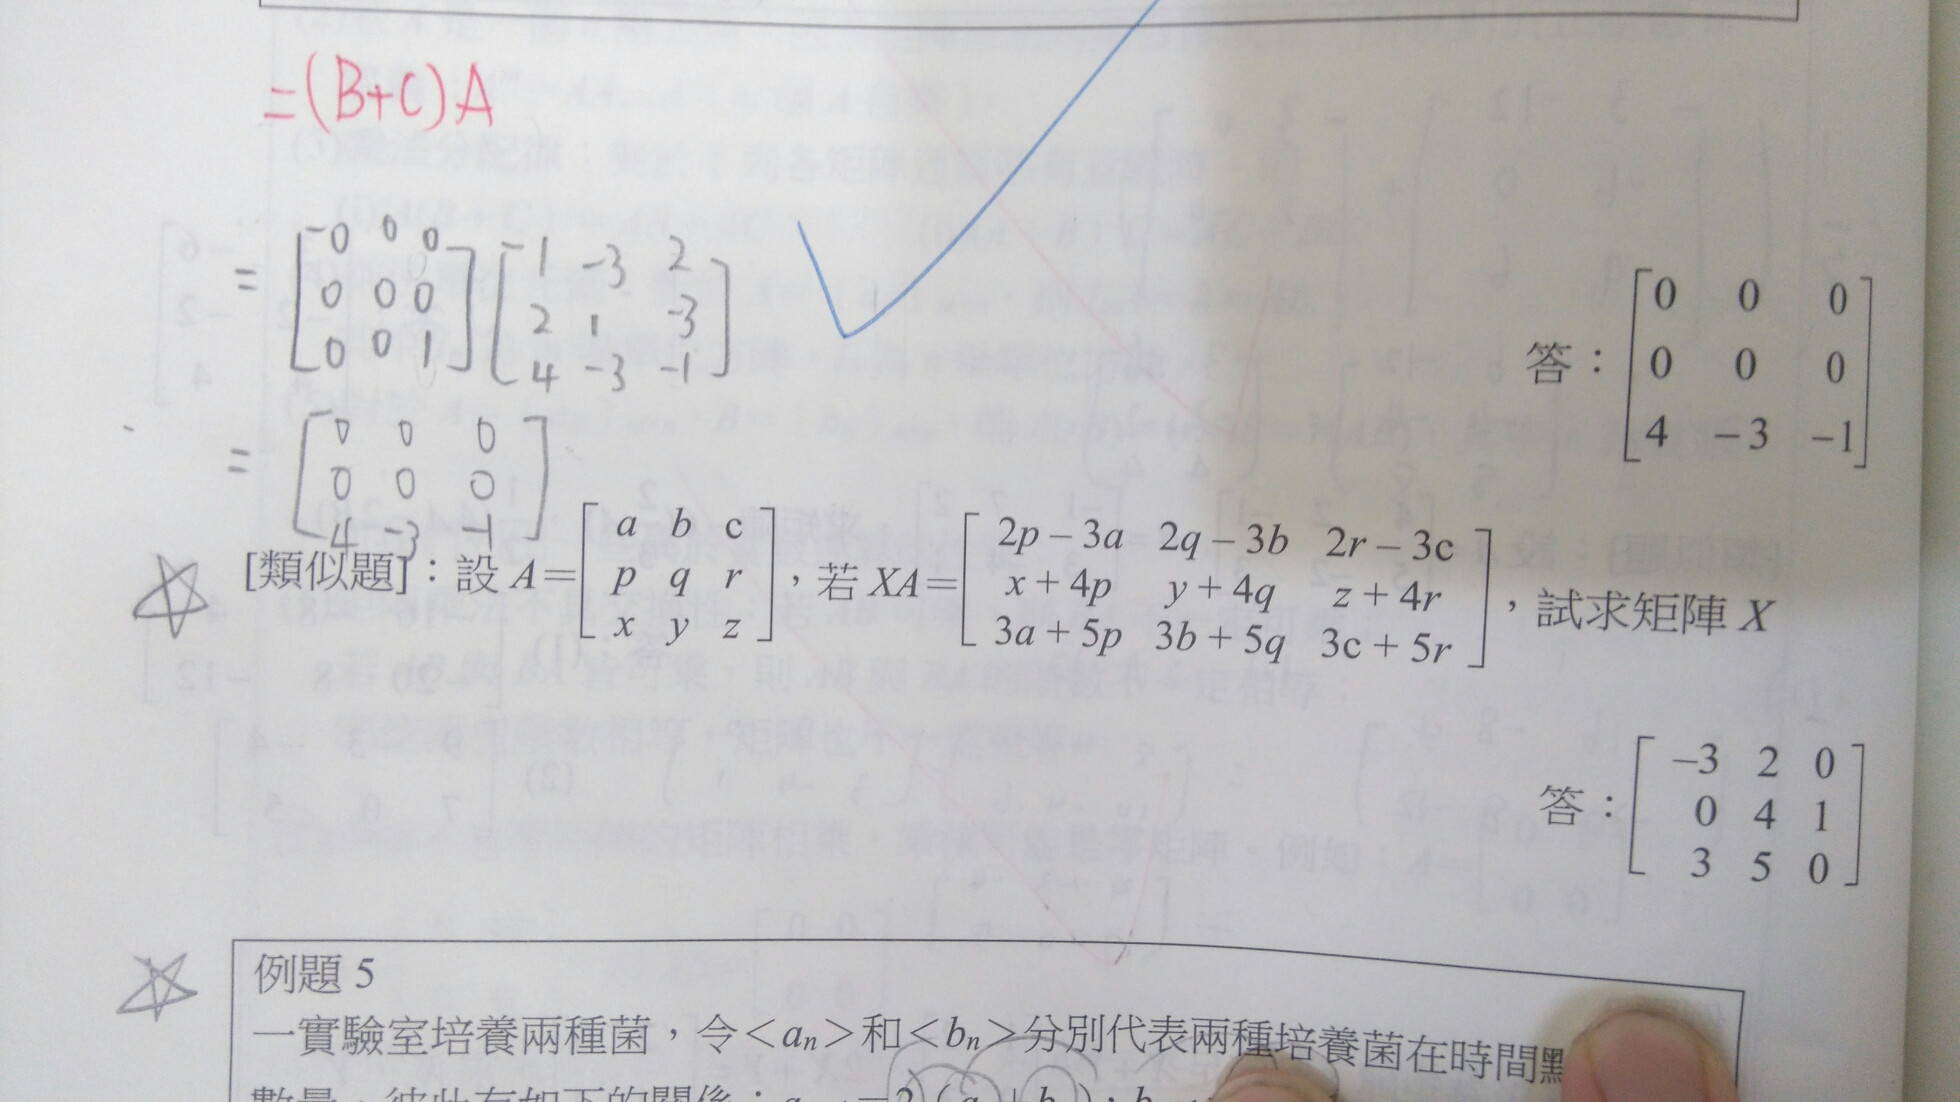 =(B+C)A
= [0 0 0; 0 0 0; 0 0 1] [1 -3 2; 2 1 -3; 4 -3 -1]
= [0 0 0; 0 0 0; 4 -3 -1]
答：[0 0 0; 0 0 0; 4 −3 −1]
[類似題]：設 A=[a b c; p q r; x y z]，若 XA=[2p−3a 2q−3b 2r−3c; x+4p y+4q z+4r; 3a+5p 3b+5q 3c+5r]，試求矩陣 X
答：[−3 2 0; 0 4 1; 3 5 0]
例題 5
一實驗室培養兩種菌，令<aₙ>和<bₙ>分別代表兩種培養菌在時間點
數量，彼此有如下的關係：